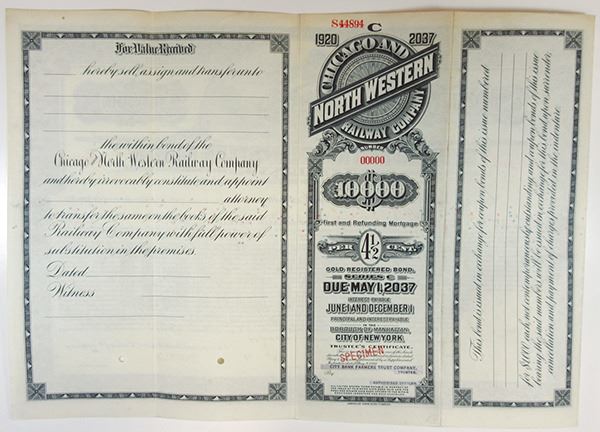 For Value Received
hereby sell, assign and transfer unto
the within bond of the
Chicago and North Western Railway Company
and hereby irrevocably constitute and appoint
attorney
to transfer the same on the books of the said
Railway Company with full power of
substitution in the premises.
Dated
Witness
S44894
C
1920 2037
CHICAGO AND
NORTH WESTERN
RAILWAY COMPANY
NUMBER
00000
10000
First and Refunding Mortgage
PER CENT.
4½
GOLD REGISTERED BOND,
SERIES C
DUE MAY 1, 2037
INTEREST PAYABLE
JUNE 1 AND DECEMBER 1
PRINCIPAL AND INTEREST PAYABLE
IN THE
BOROUGH OF MANHATTAN,
CITY OF NEW YORK
TRUSTEE'S CERTIFICATE.
SPECIMEN
CITY BANK FARMERS TRUST COMPANY,
TRUSTEE,
By
AUTHORIZED OFFICER
This bond is issued in exchange for coupon bonds of this issue numbered
for $1,000 each, not contemporaneously outstanding, and coupon bonds of this issue
bearing the said numbers will be issued in exchange for this bond upon surrender,
cancellation and payment of charges provided in the indenture.